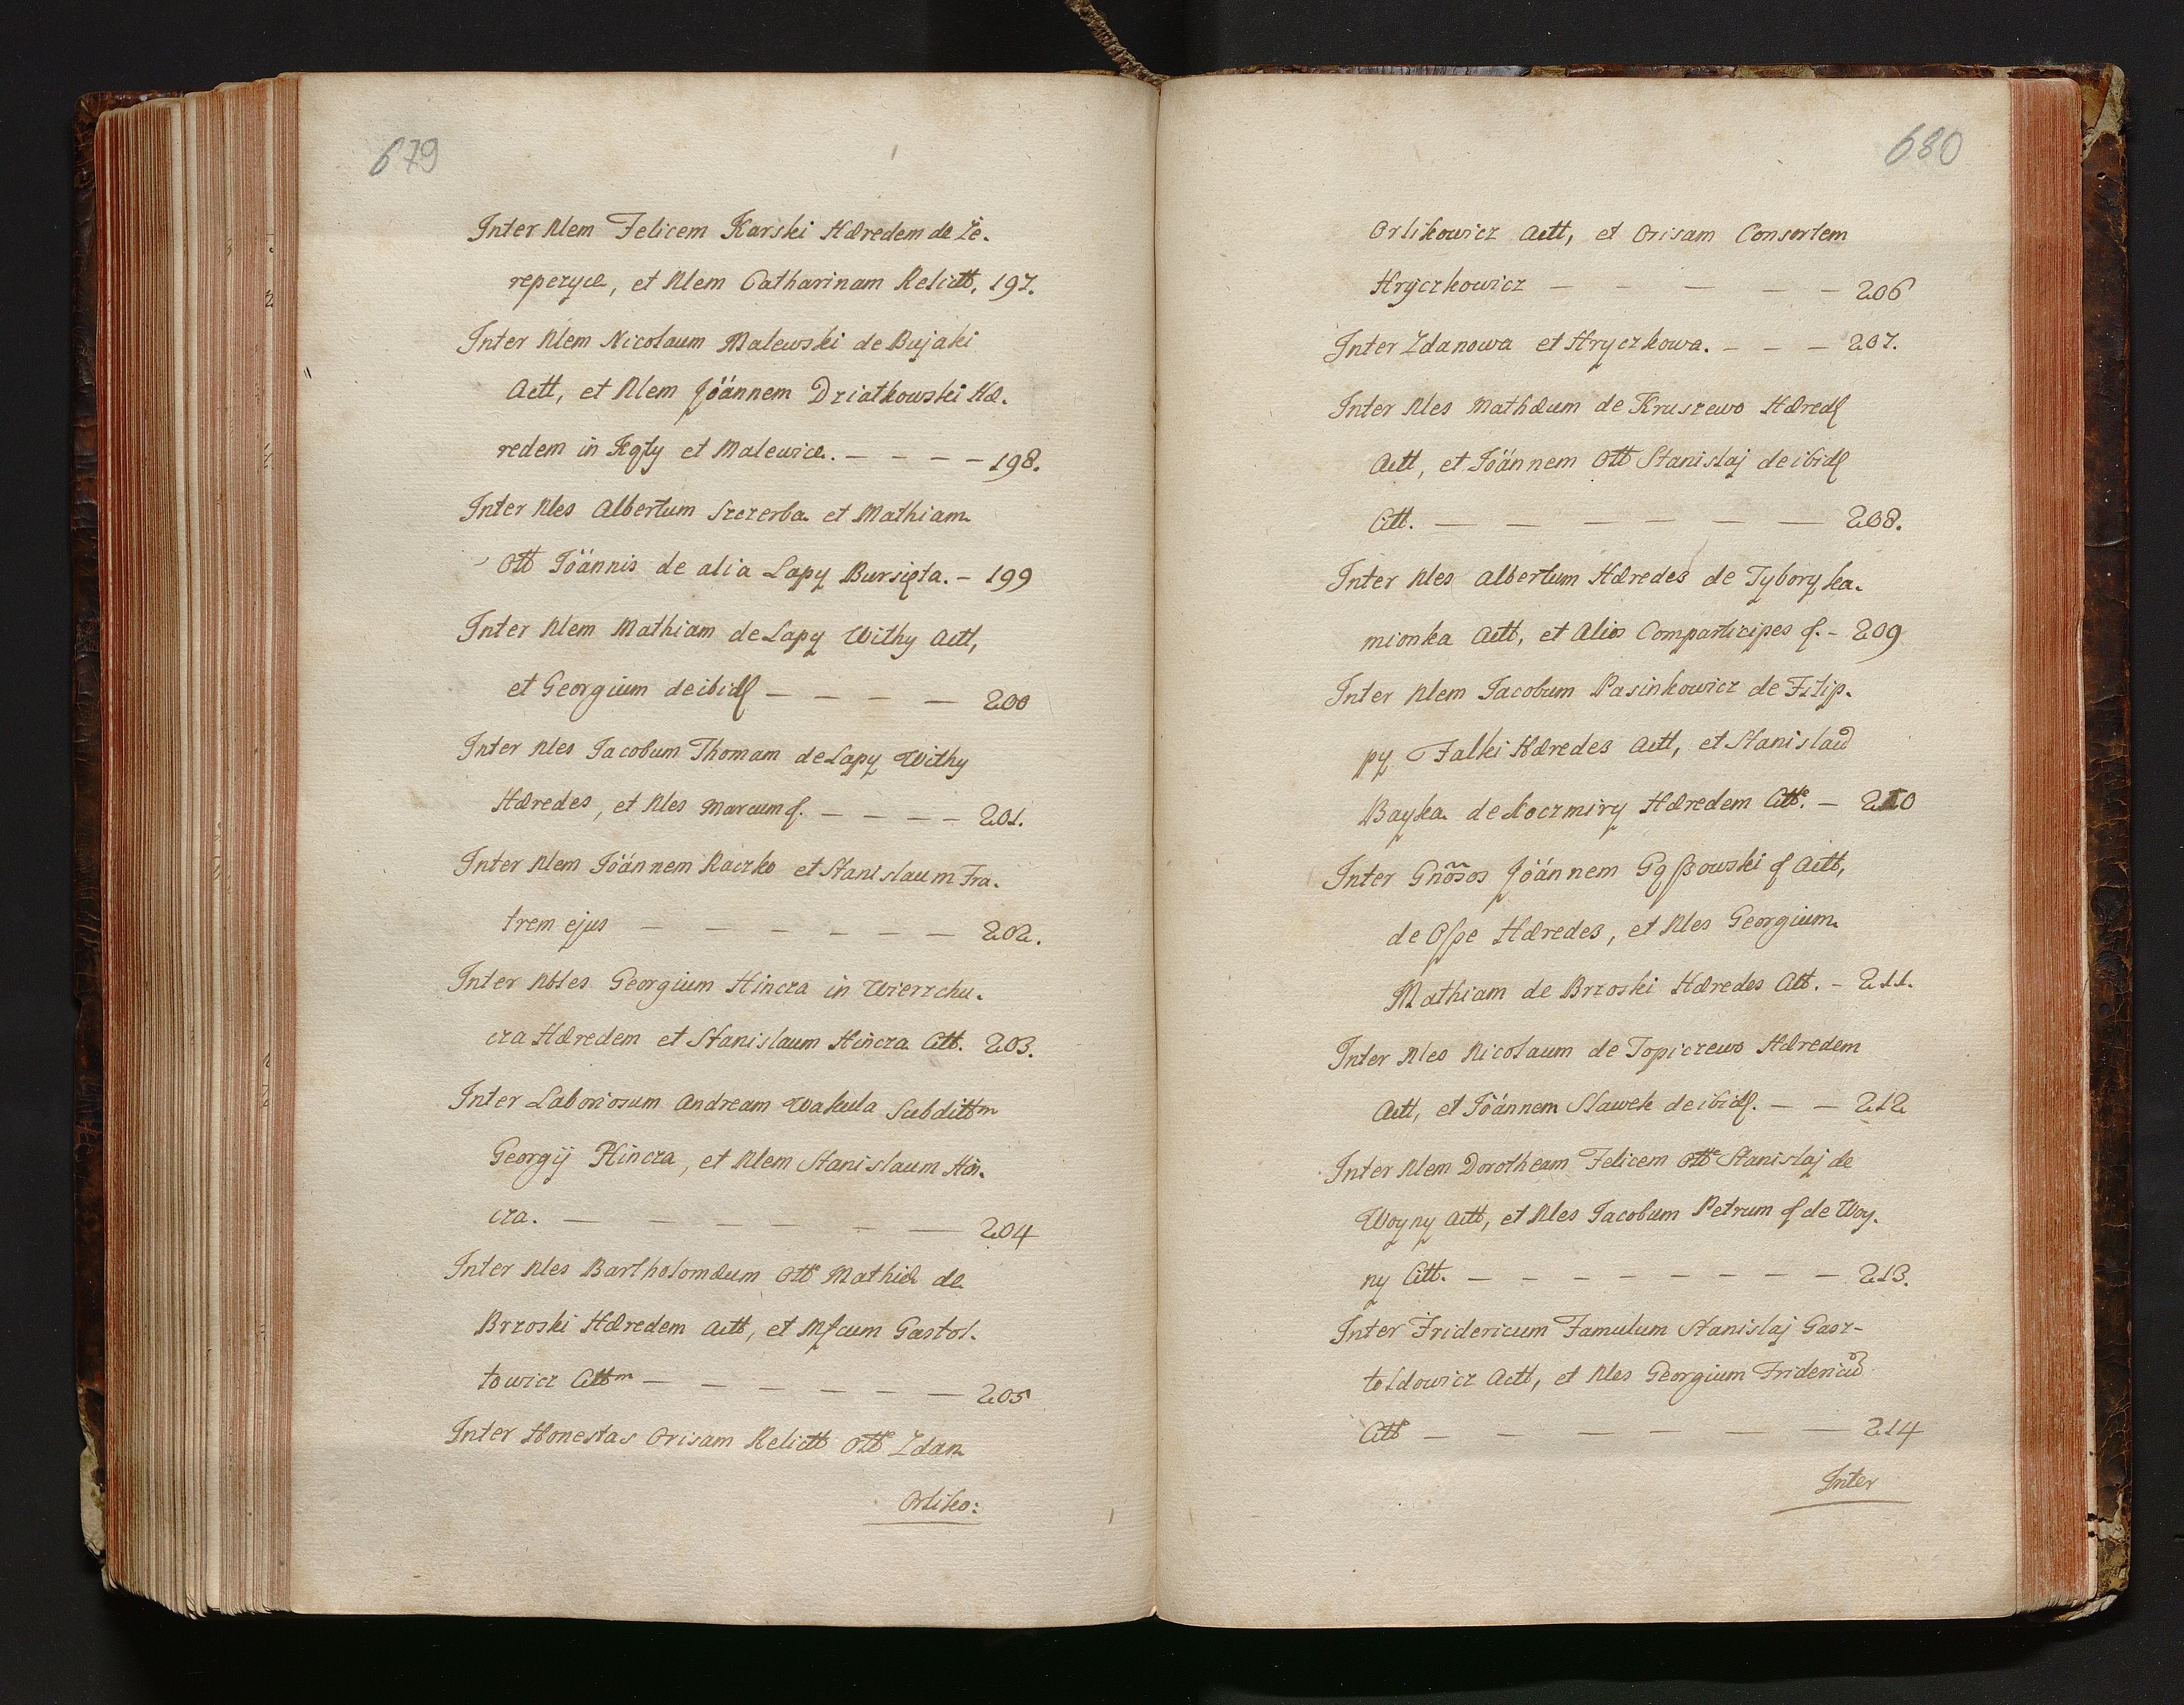 679
Inter Nlem Felicem Karski Hæredem de Że-
reperyce, et Nlem Catharinam Relictt. 197.
Inter Nlem Nicolaum Malewski de Bujaki
Actt, et Nlem Jöannem Dziatkowski Hæ-
redem in Kąty et Malewice. — — — — 198.
Inter Nles Albertum Szczerba et Mathiam
Ott Jöannis de alia Lapy Bursięta. — 199
Inter Nlem Mathiam de Lapy Withy Actt,
et Georgium de ibid — — — — 200
Inter Nles Jacobum Thomam de Lapy Withy
Hæredes, et Nles Marcum f. — — — — 201.
Inter Nlem Jöannem Raczko et Stanislaum Fra-
trem ejus — — — — — — 202.
Inter Nbles Georgium Hincza in Wierzchu-
cza Hæredem et Stanislaum Hincza Citt. 203.
Inter Laboriosum Andream Wakula Subdittm
Georgij Hincza, et Nlem Stanislaum Hin-
cza. — — — — — — 204
Inter Nles Bartholomæum Ott Mathiæ de
Brzoski Hæredem Actt, et Mfcum Gastol-
towicz Cittm — — — — — — 205
Inter Honestas Orisam Relictt Ott Zdan
Orliko:
680
Orlikowicz Actt, et Orisam Consortem
Hryczkowicz — — — — — 206
Inter Zdanowa et Hryczkowa. — — — 207.
Inter Nles Mathæum de Kruszewo Hæred
Actt, et Jöannem Ott Stanislaj de ibid
Citt. — — — — — — 208.
Inter Nles Albertum Hæredes de Tybory ka-
mionka Actt, et Alios Comparticipes f. — 209
Inter Nlem Jacobum Pasinkowicz de Filip-
py Falki Hæredes Actt, et Stanislaum
Bayka de Koczmiry Hæredem Citt. — 210
Inter Gnosos Jöannem Gąssowski f Actt,
de Osse Hæredes, et Nles Georgium
Mathiam de Brzoski Hæredes Citt. — 211.
Inter Nles Nicolaum de Topiczewo Hæredem
Actt, et Jöannem Slawek de ibid. — — 212
Inter Nlem Dorotheam Felicem Ott Stanislaj de
Woyny Actt, et Nles Jacobum Petrum f de Woy-
ny Citt. — — — — — — — — 213.
Inter Fridericum Famulum Stanislaj Gasz-
toldowicz Actt, et Nles Georgium Fridericum
Citt — — — — — — 214
Inter